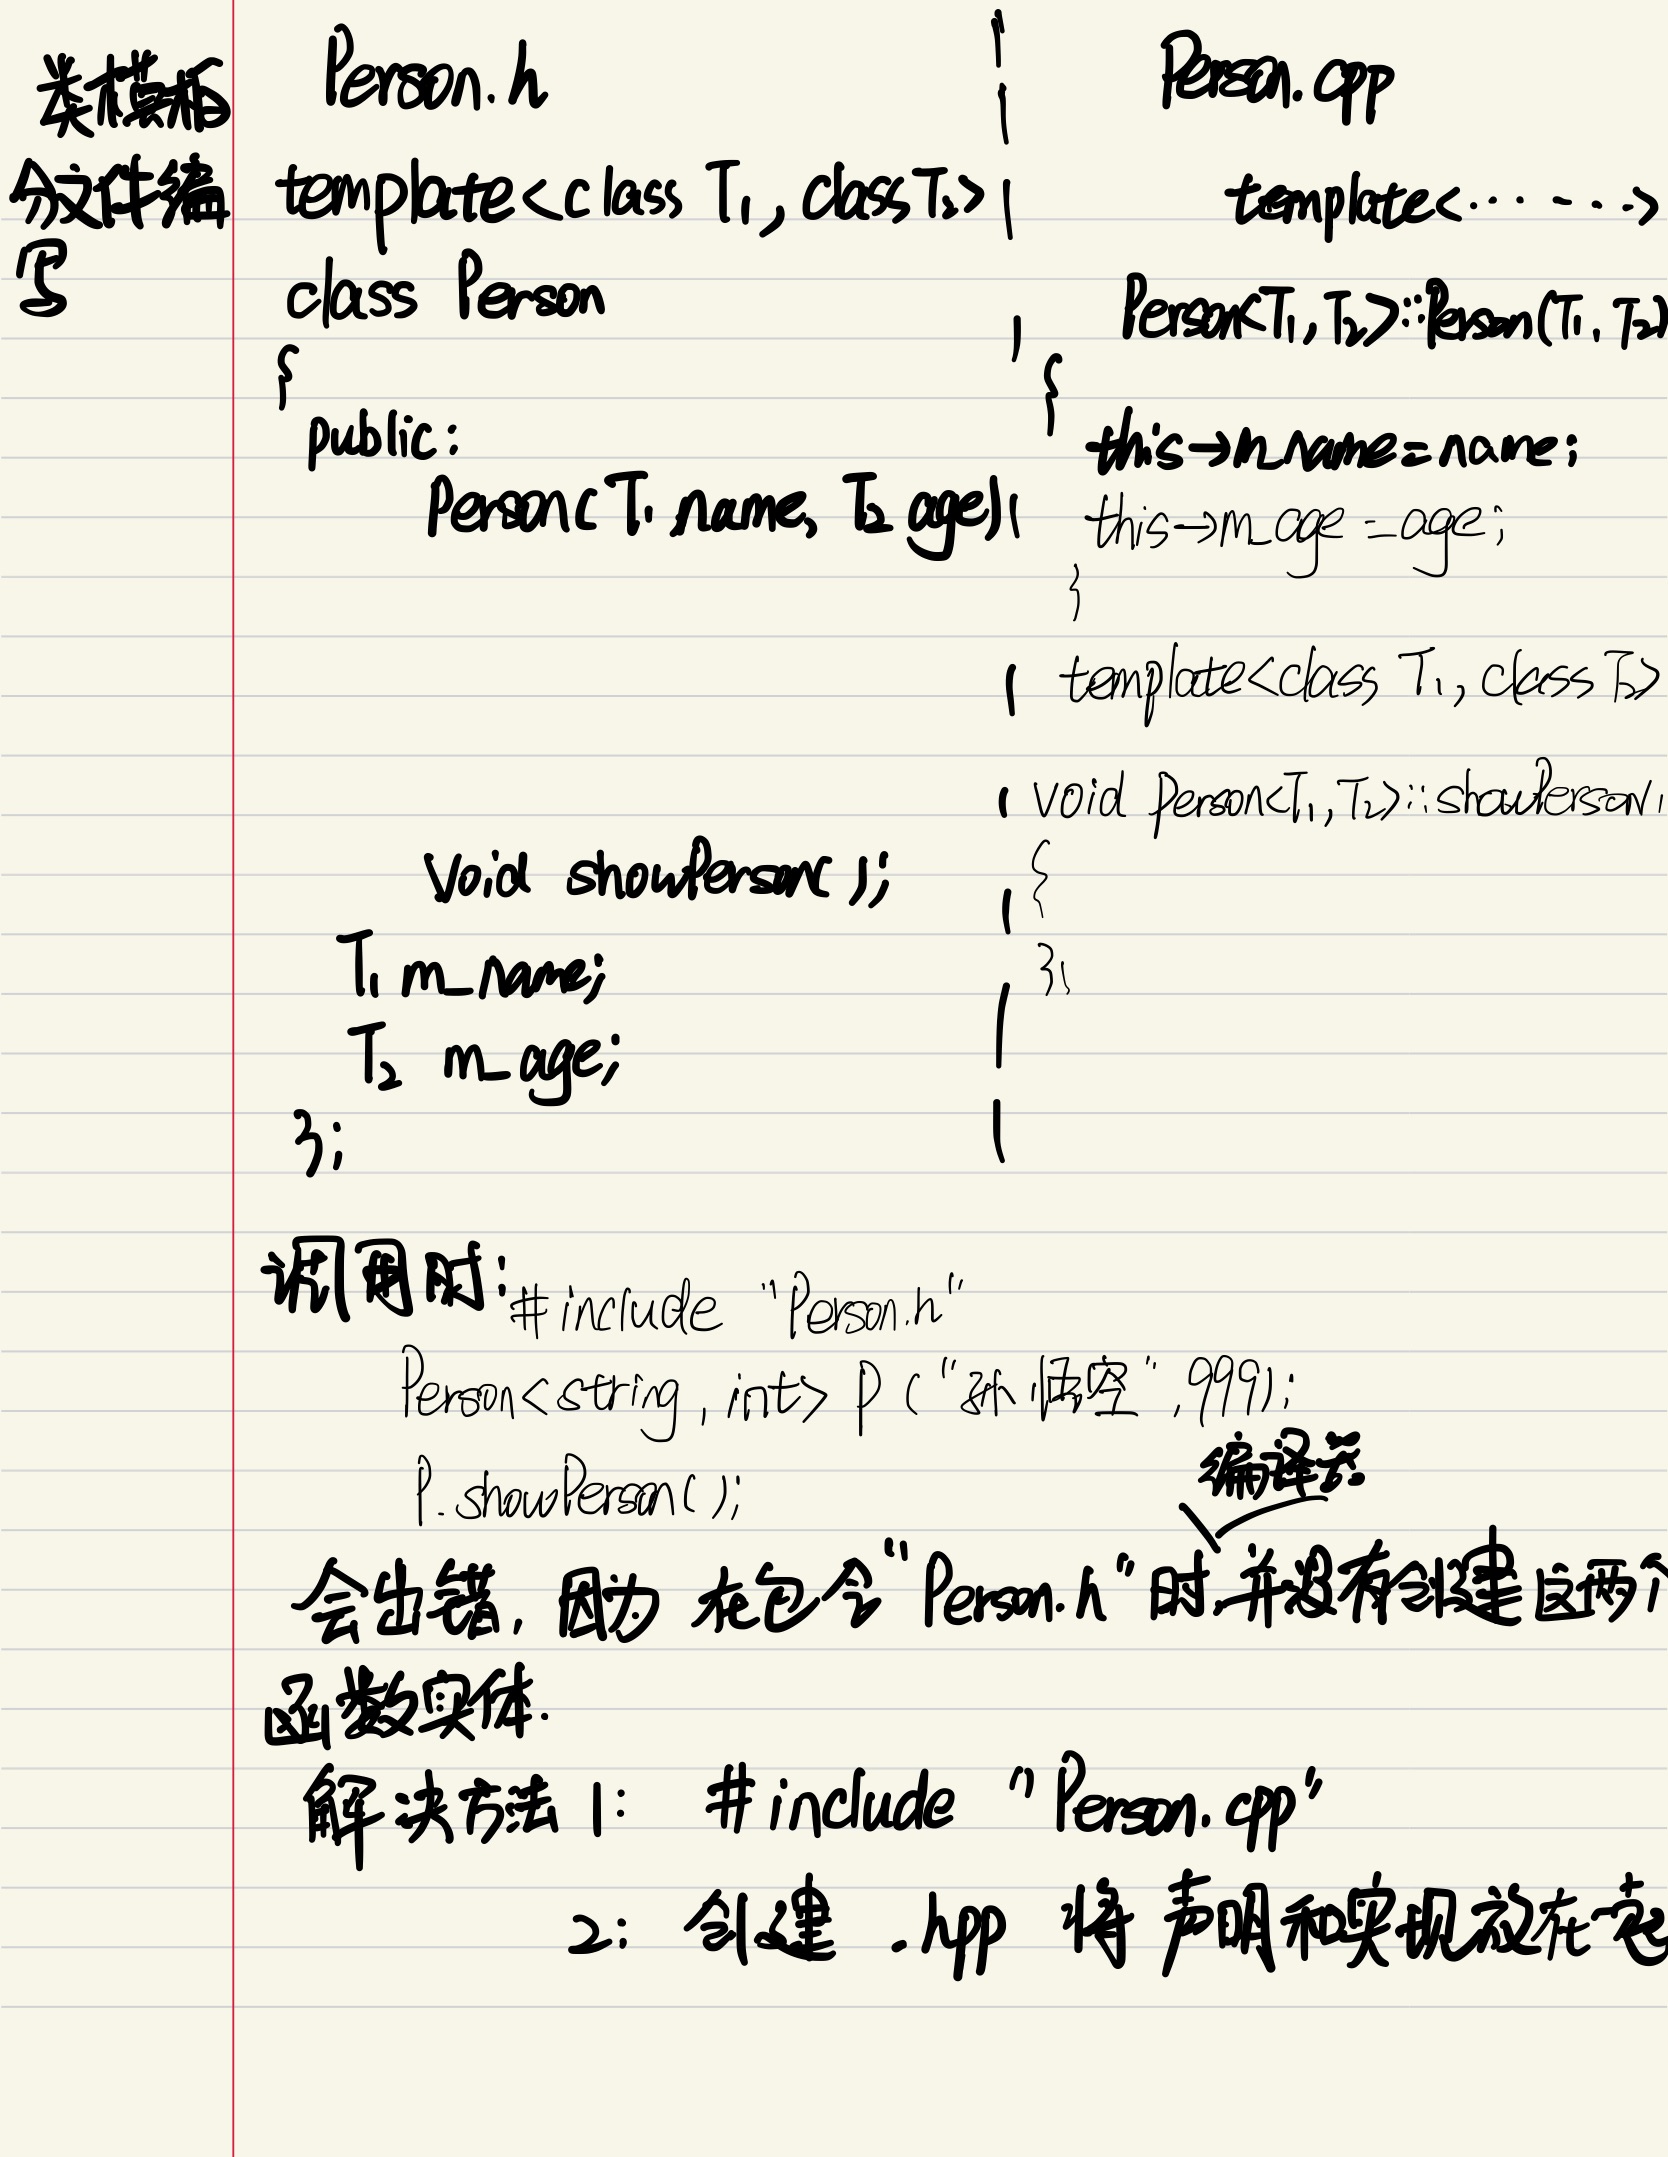 类模板
分文件编
写
Person.h
template<class T1, class T2>
class Person
{
public:
Person(T1 name, T2 age)
void showPerson();
T1 m_name;
T2 m_age;
};
Person.cpp
template<······>
Person<T1,T2>::Person(T1, T2)
{
this→m_name=name;
this→m_age=age;
}
template<class T1, class T2>
void Person<T1,T2>::showPerson
{
};
调用时:
#include "Person.h"
Person<string, int> P("孙悟空",999);
P.showPerson();
编译器
会出错,因为在包含"Person.h"时,并没有创建这两个
函数实体.
解决方法1: #include "Person.cpp"
2: 创建 .hpp 将声明和实现放在一起